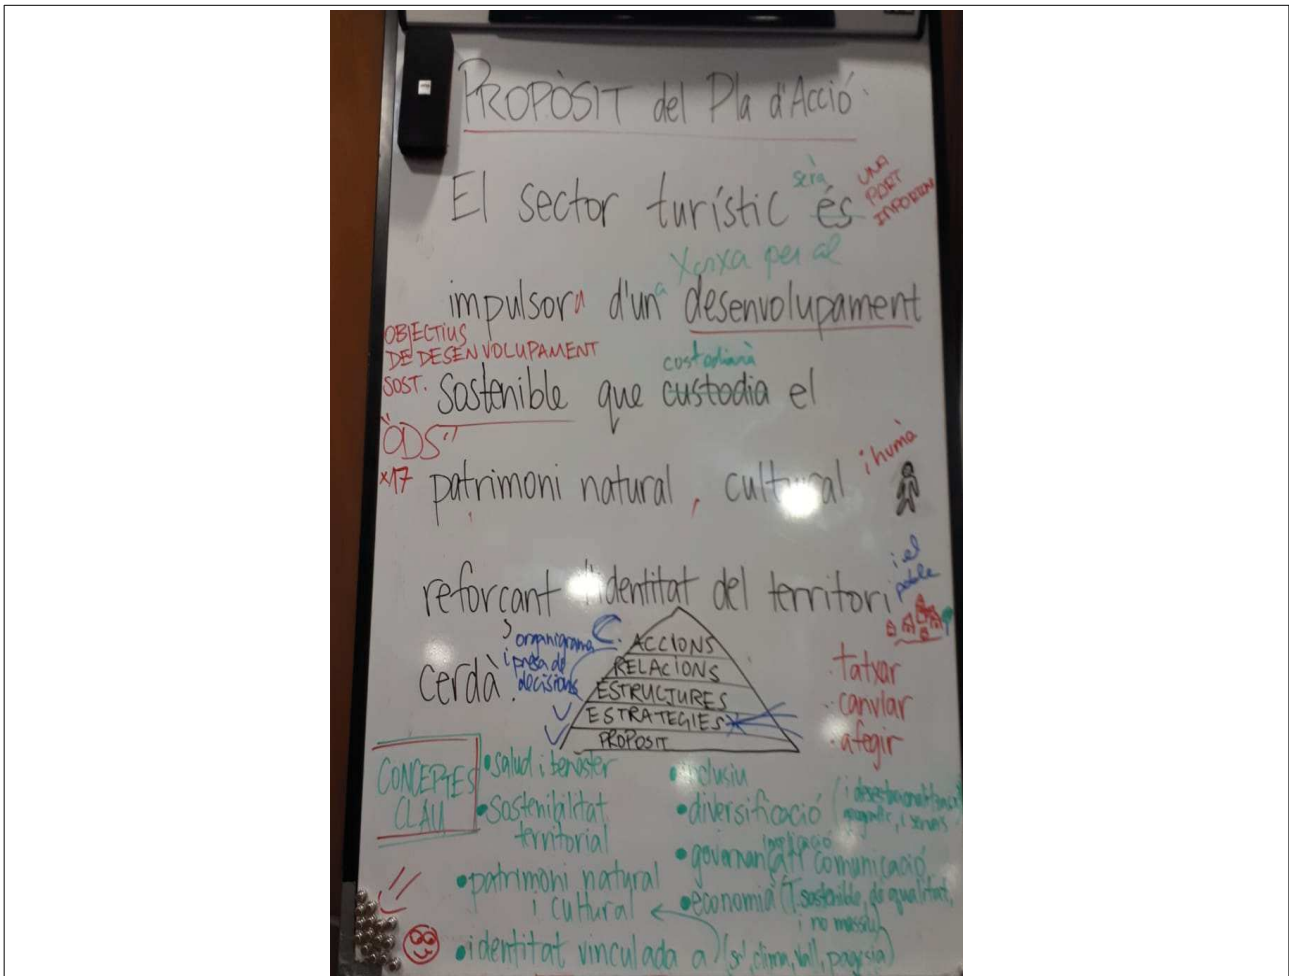 PROPÒSIT del Pla d'Acció
El sector turístic serà és UNA
PORT
xarxa per al
impulsora d'una desenvolupament
OBJECTIUS
DE DESENVOLUPAMENT
SOST.
custodiarà
sostenible que custodia el
"ODS"
x17
patrimoni natural, cultural i humà
reforçant l'identitat del territori i el
poble
cerdà.
organigrama
i presa de
decisions
ACCIONS
RELACIONS
ESTRUCTURES
ESTRATEGIES
PROPOSIT
· tatxar
· canviar
· afegir
CONCEPTES
CLAU
• salud i benester
• sostenibilitat
territorial
• patrimoni natural
i cultural
• identitat vinculada a (sol, clima, vall, pagesia)
• inclusiu
• diversificació (i desestacionalització
i serveis
• governança comunicació
• economia (T. sostenible, de qualitat,
i no massiu)